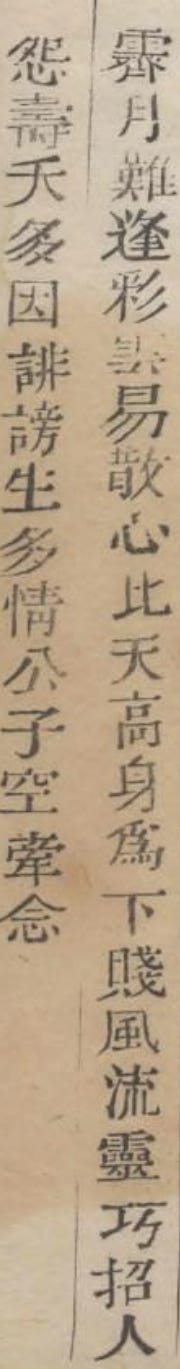 霽月難逢彩雲易散心比天高身爲下賤風流靈巧招人
怨壽夭多因誹謗生多情公子空牽念